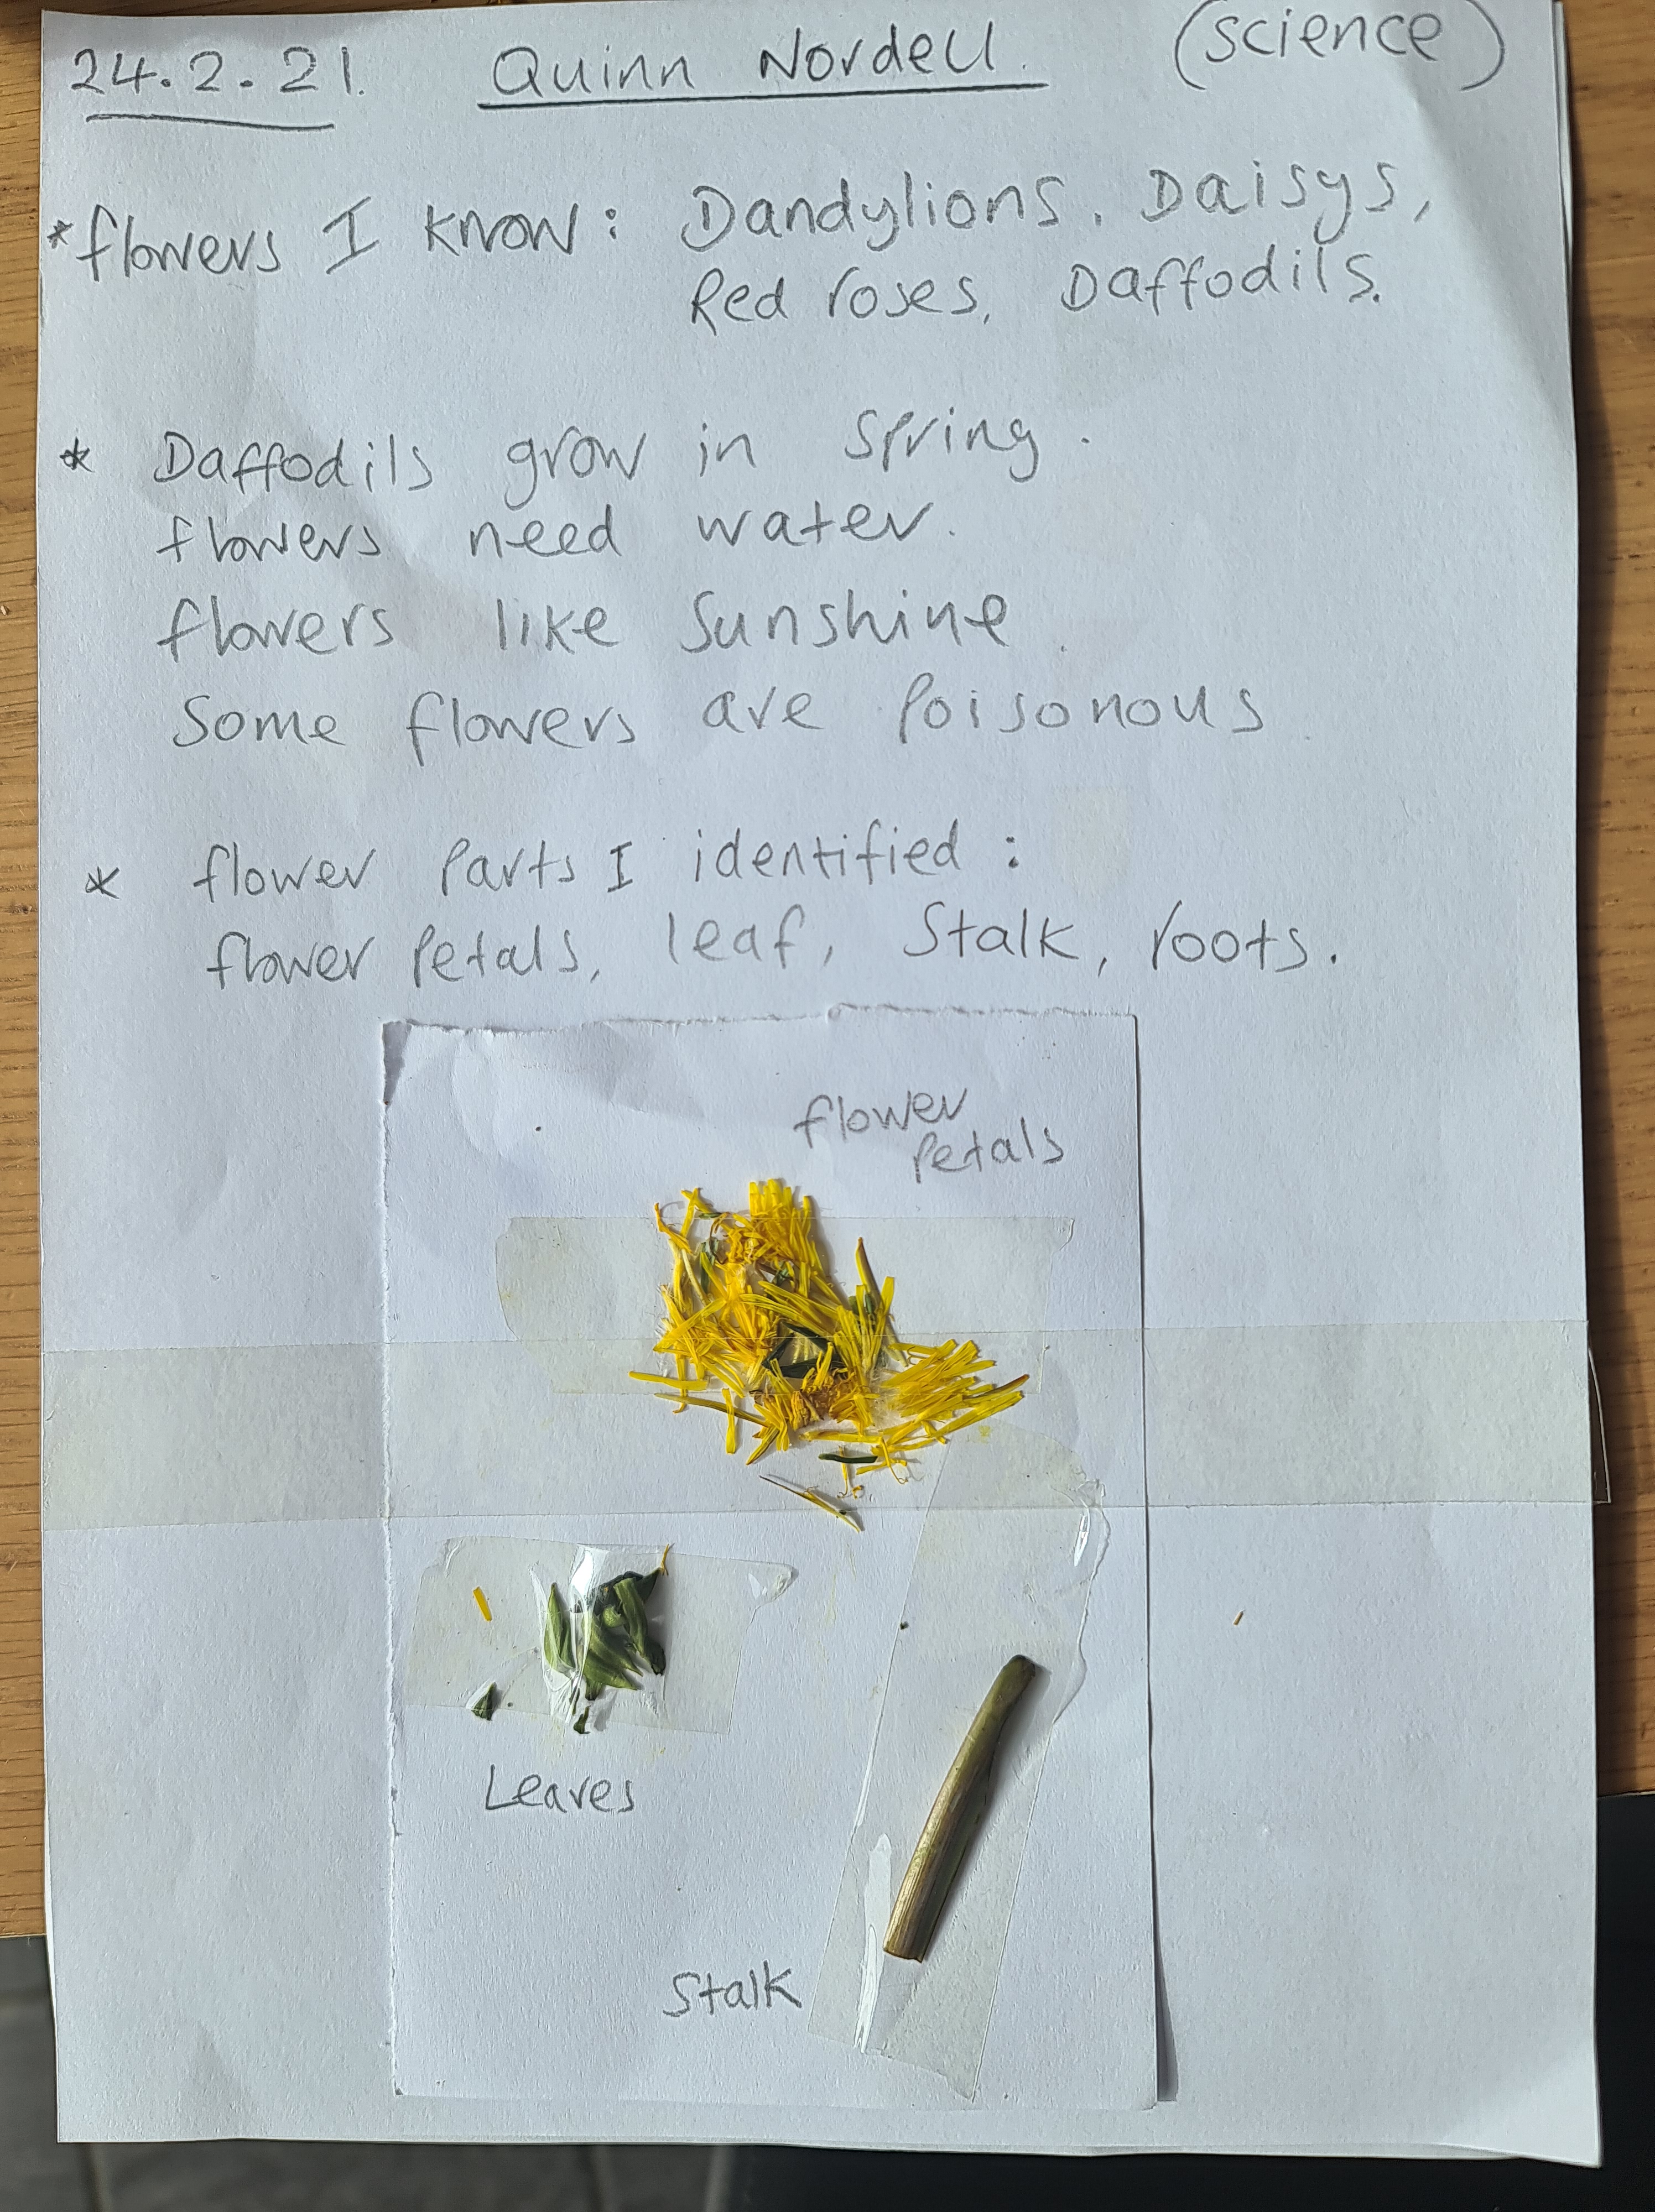 24.2.21. Quinn Nordell. (science)
*flowers I know: Dandylions, Daisys,
Red roses, Daffodils.
* Daffodils grow in spring.
flowers need water.
flowers like sunshine.
Some flowers are poisonous.
* flower parts I identified:
flower petals, leaf, stalk, roots.
flower
petals
Leaves
Stalk